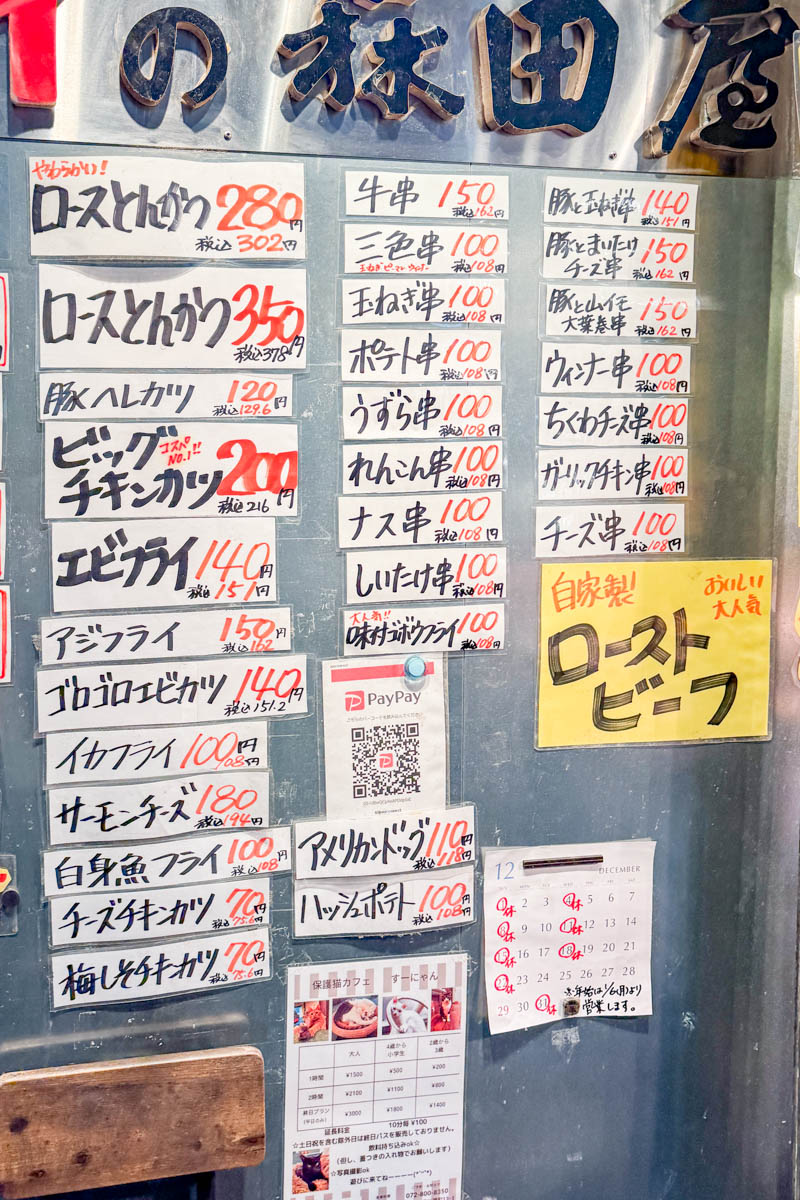 の森田屋
やわらかい!
ロースとんかつ 280円
税込 302円
ロースとんかつ 350円
税込378円
豚ヘレカツ 120
税込129.6円
ビッグ
チキンカツ
コスパ
NO.1!!
200円
税込216
エビフライ 140円
税込151円
アジフライ 150円
税込162
ゴロゴロエビカツ 140円
税込151.2
イカフライ 100円
108円
サーモンチーズ 180
税込194円
白身魚フライ 100円
税込108
チーズチキンカツ 70円
税込75.6
梅しそチキンカツ 70円
税込75.6
牛串 150
税込162円
三色串 100
税込108円
玉ねぎ串 100
税込108円
ポテト串 100
税込108円
うずら串 100
税込108円
れんこん串 100
税込108円
ナス串 100
税込108円
しいたけ串 100
税込108円
大人気!!
味付ゴボウフライ 100
税込108円
PayPay
アメリカンドッグ 110円
税込118円
ハッシュポテト 100円
税込108
豚と玉ねぎ串 140
税込151円
豚とまいたけ
チーズ串 150
税込162円
豚と山イモ
大葉巻串 150
税込162円
ウィンナー串 100
税込108円
ちくわチーズ串 100
税込108円
ガーリックチキン串 100
税込108円
チーズ串 100
税込108円
自家製
おいしい
大人気
ロースト
ビーフ
12 DECEMBER
1休 2 3 4休 5 6 7
休 9 10 11休 12 13 14
休 16 17 18休 19 20 21
22休 23 24 25 26 27 28
29 30 31休
※年始は1/6(月)より
営業します。
保護猫カフェ すーにゃん
大人 4歳から小学生 2歳から3歳
1時間 ¥1500 ¥500 ¥200
2時間 ¥2100 ¥1100 ¥800
終日プラン(平日のみ) ¥3000 ¥1800 ¥1400
延長料金 10分毎 ¥100
☆土日祝を含む除外日は終日パスを販売しておりません。
飲料持ち込みok☆
(但し、蓋つきの入れ物でお願いします)
☆写真撮影ok
遊びに来てねーーーー(*^^*)
072-800-8350